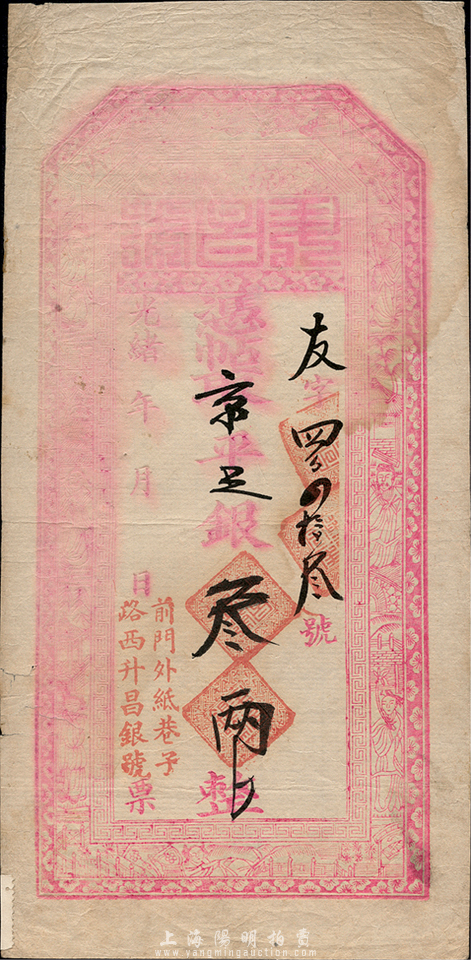 友字四百四拾叁號
憑帖取平銀叁兩整
京足
光緒 年 月 日票
前門外紙巷子
路西升昌銀號
上海陽明拍賣
www.yangmingauction.com